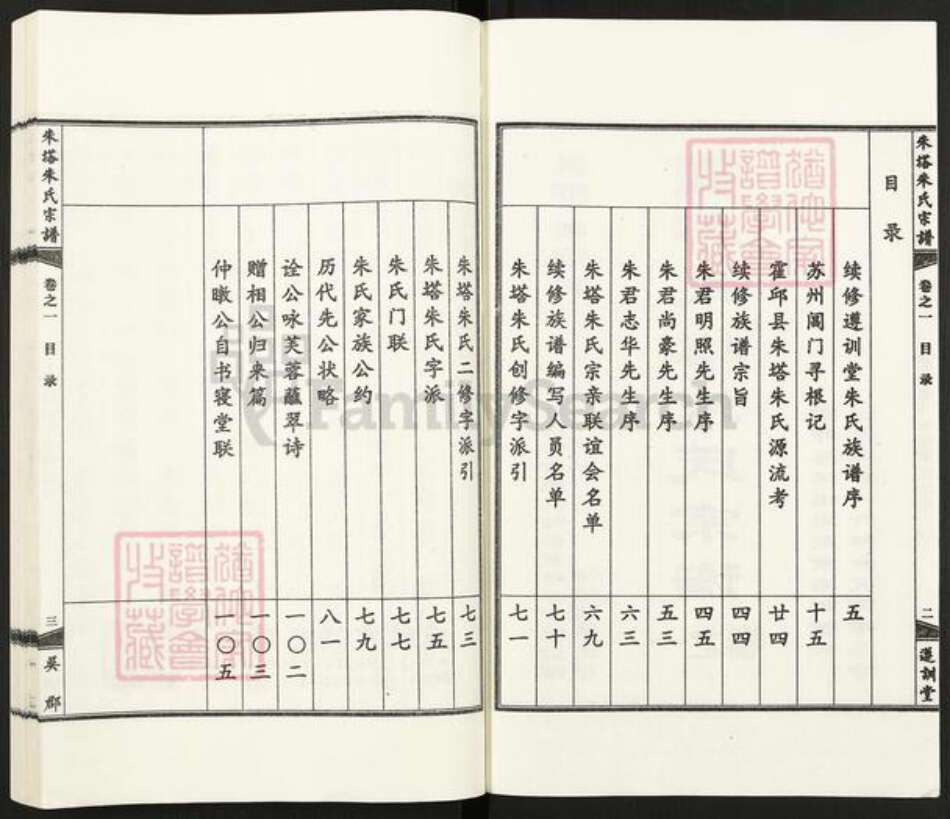 朱塔朱氏宗谱
卷之一 目录
二
遵训堂
目录
续修遵训堂朱氏族谱序 五
苏州阊门寻根记 十五
霍邱县朱塔朱氏源流考 廿四
续修族谱宗旨 四四
朱君明照先生序 四五
朱君尚豪先生序 五三
朱君志华先生序 六三
朱塔朱氏宗亲联谊会名单 六九
续修族谱编写人员名单 七十
朱塔朱氏创修字派引 七一
朱塔朱氏二修字派引 七三
朱塔朱氏字派 七五
朱氏门联 七七
朱氏家族公约 七九
历代先公状略 八一
诠公咏芙蓉蘸翠诗 一〇二
赠相公归来篇 一〇三
仲暾公自书寝堂联 一〇五
朱塔朱氏宗谱
卷之一 目录
三
吴郡
FamilySearch